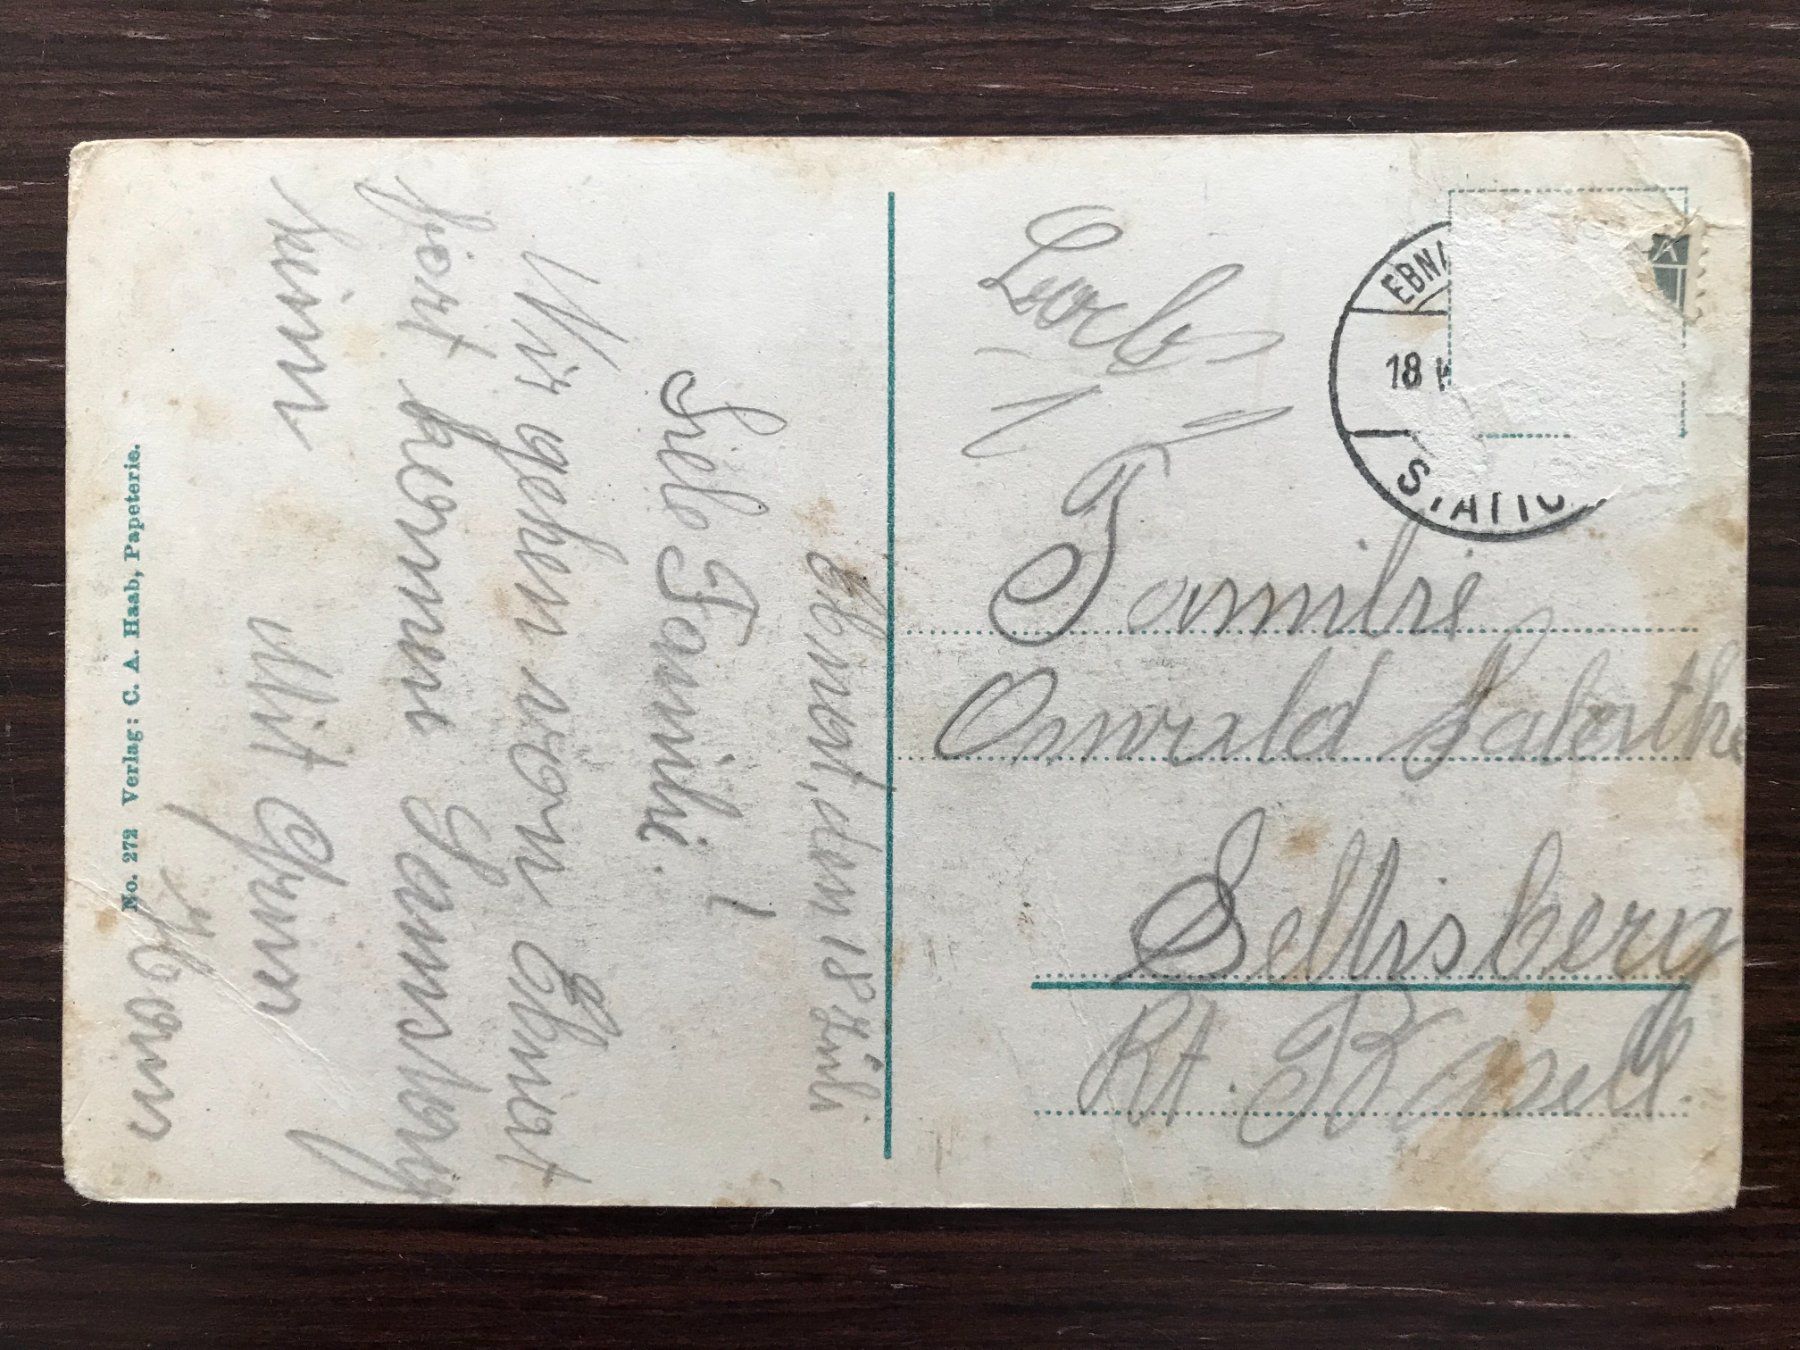 No. 272 Verlag: C. A. Haab, Papeterie.
Ebnat, den 18 Juli
Liebe Familie. !
Wir gehen von Ebnat
fort kommen Samstag
heim
Mit Gruss
EBNA
18
STATIO
A
Familie
Oswald
Seltisberg
Kt. Basell.